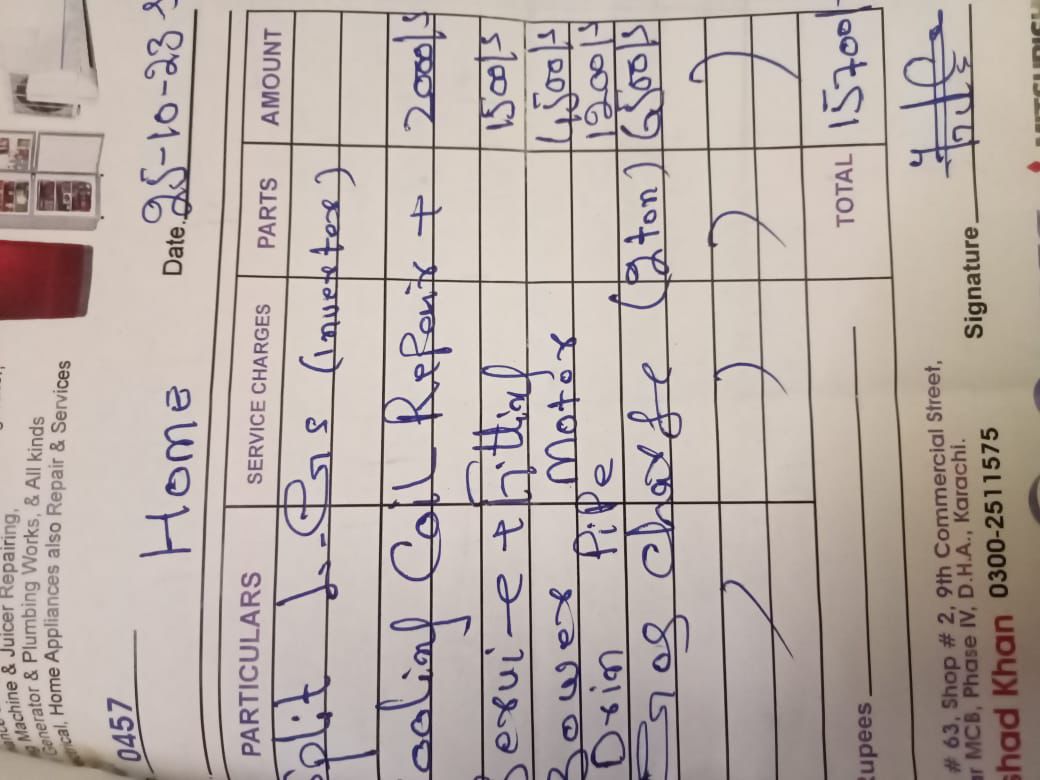 Machine & Juicer Repairing,
Generator & Plumbing Works, & All kinds
Home Appliances also Repair & Services
0457
Home
Date. 25-10-23
PARTICULARS SERVICE CHARGES PARTS AMOUNT
Split (inverter)
Cooling Coil Repair + 2000/s
+ fitting 1500/s
Bower Motor 4500/s
Drin Pipe 1200/s
Gas Charge (gton) 6500/s
TOTAL 15700/-
Rupees
# 63, Shop # 2, 9th Commercial Street,
MCB, Phase IV, D.H.A., Karachi.
Signature
Khan 0300-2511575